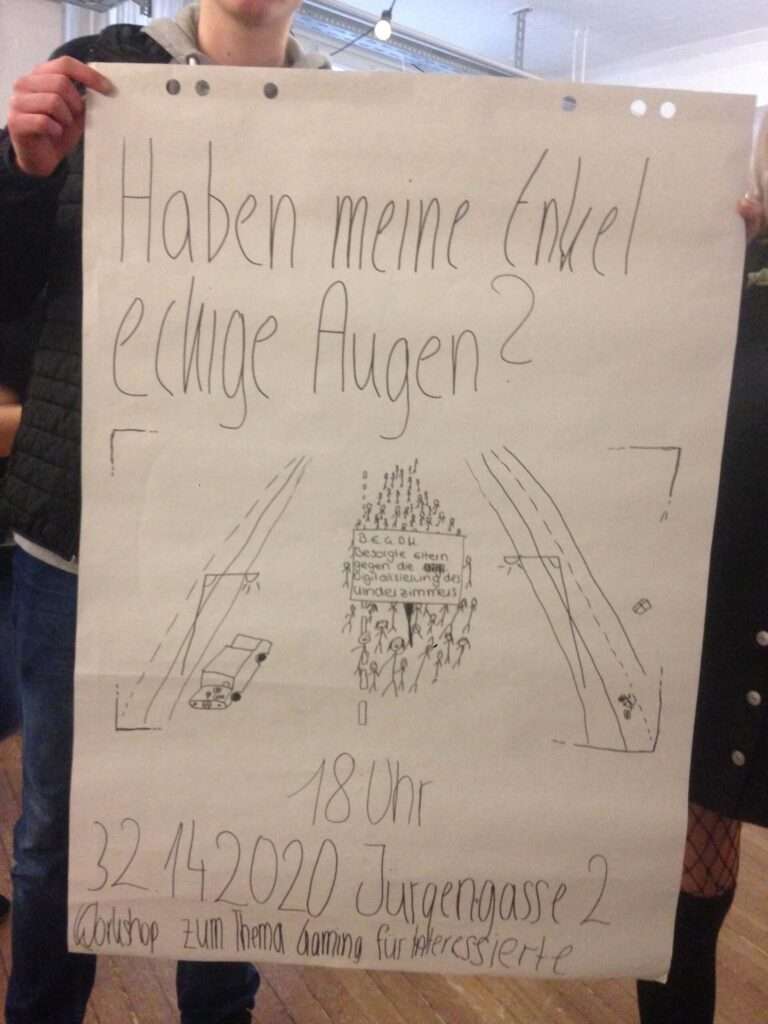 Haben meine Enkel
eckige Augen?
B.E.G.D.K.
Besorgte Eltern
gegen die
Digitalisierung des
Kinderzimmers
18 Uhr
32.14.2020 Jürgengasse 2
Workshop zum Thema Gaming für Interessierte